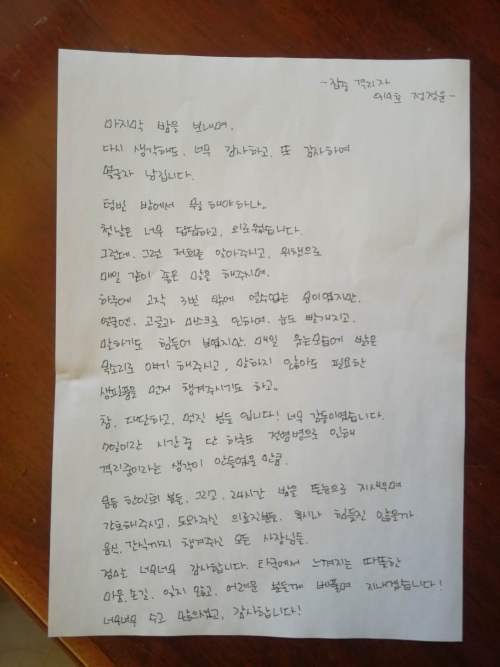 - 잠중 격리자
914호 정정운 -
마지막 밤을 보내며,
다시 생각해도, 너무 감사하고, 또 감사하여
몇글자 남깁니다.
텅빈 방에서 뭘 해야하나..
첫날은 너무 답답하고, 외로웠습니다.
그런데, 그런 저희를 알아주시고, 위챗으로
매일 같이 좋은 말을 해주시며,
하루에 고작 3번 밖에 열수없는 문이였지만,
얼굴엔, 고글과 마스크로 인하여, 눈도 빨개지고,
말하기도 힘들어 보였지만, 매일 웃는모습에 밝은
목소리로 얘기 해주시고, 말하지 않아도 필요한
생필품을 먼저 챙겨주시기도 하고..
참, 대단하고, 멋진 분들 입니다! 너무 감동이였습니다.
14일이란 시간중 단 하루도 전염병으로 인해
격리중이라는 생각이 안들었을만큼.
모든 한인회 분들, 그리고, 24시간 밤을 뜬눈으로 지새우며
간호해주시고, 도와주신 의료진분들, 혹시나 힘들진 않을까
음식, 간식까지 챙겨주신 모든 사장님들.
정말 너무너무 감사합니다. 타국에서 느껴지는 따뜻한
마음, 손길, 잊지 않고, 어려운 분들께 베풀며 지내겠습니다!
너무너무 수고 많으셨고, 감사합니다!